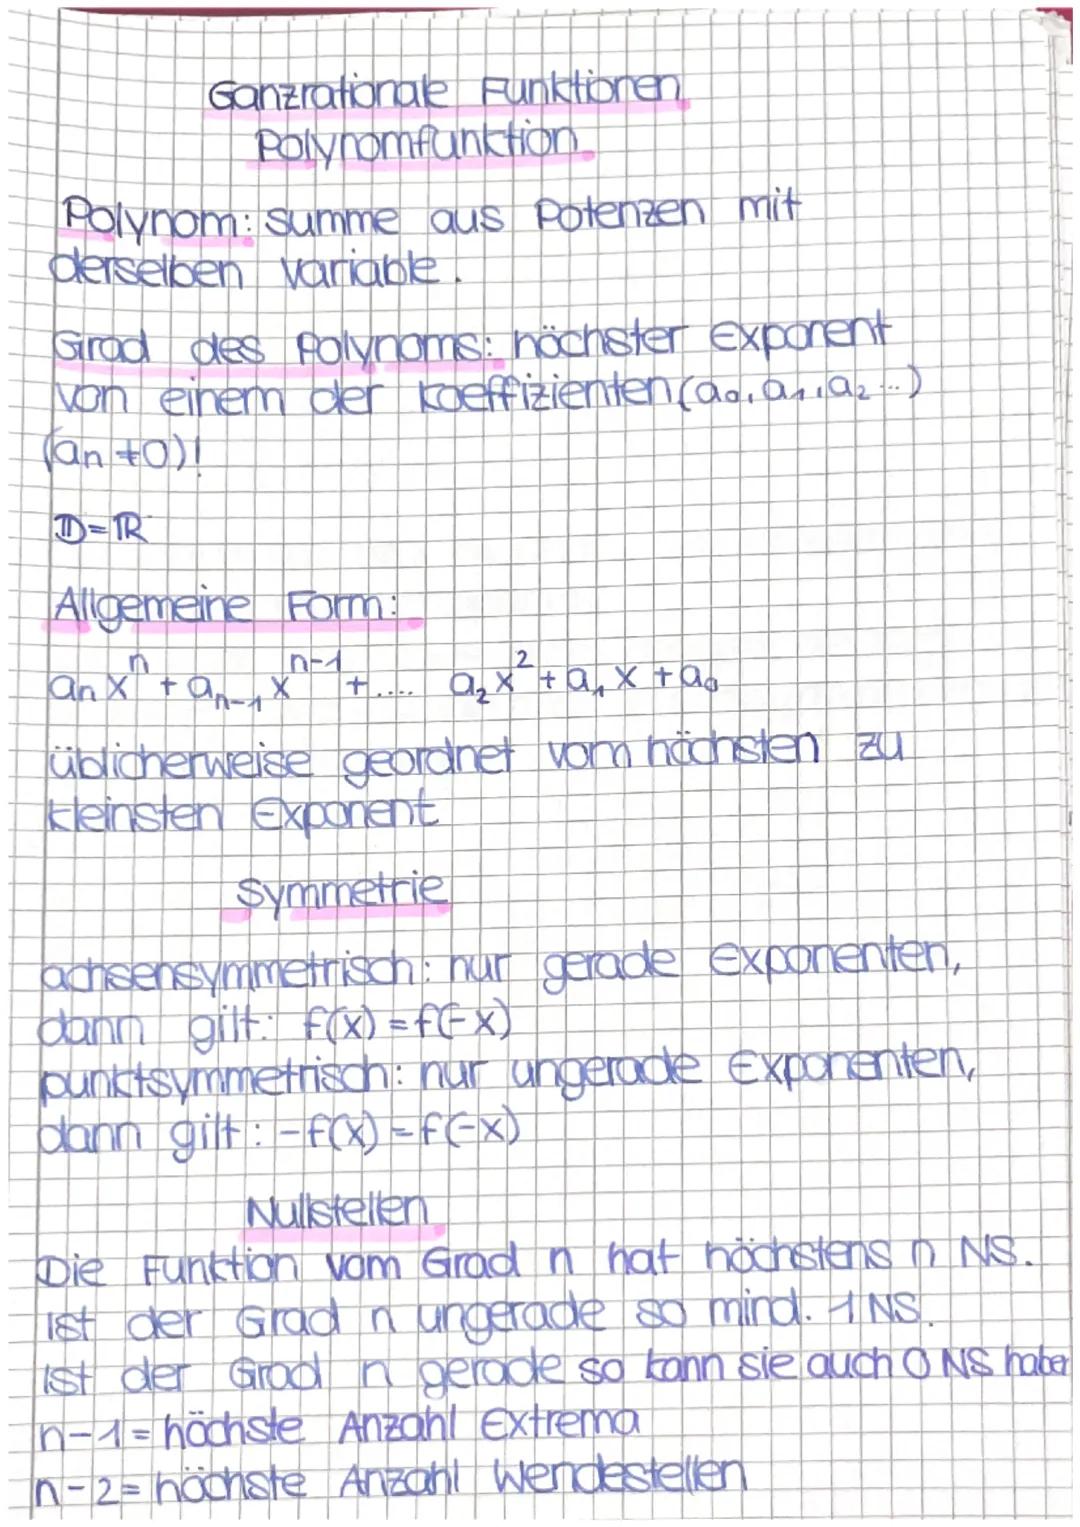 Ganzrationale Funktionen
Polynomfunktion
Polynom: Summe aus Potenzen mit
derselben Variable.
Grad des Polynoms: höchster Exponent
von einem der Koeffizienten (a₀, a₁, a₂ ...)
(an ≠ 0)!
𝔻 = ℝ
Allgemeine Form:
aₙxⁿ + aₙ₋₁xⁿ⁻¹ + .... a₂x² + a₁x + a₀
üblicherweise geordnet vom höchsten zu
kleinsten Exponent
Symmetrie
achsensymmetrisch: nur gerade Exponenten,
dann gilt: f(x) = f(-x)
punktsymmetrisch: nur ungerade Exponenten,
dann gilt: -f(x) = f(-x)
Nullstellen
Die Funktion vom Grad n hat höchstens n NS.
ist der Grad n ungerade so mind. 1 NS.
ist der Grad n gerade so kann sie auch 0 NS haben
n-1 = höchste Anzahl Extrema
n-2 = höchste Anzahl Wendestellen